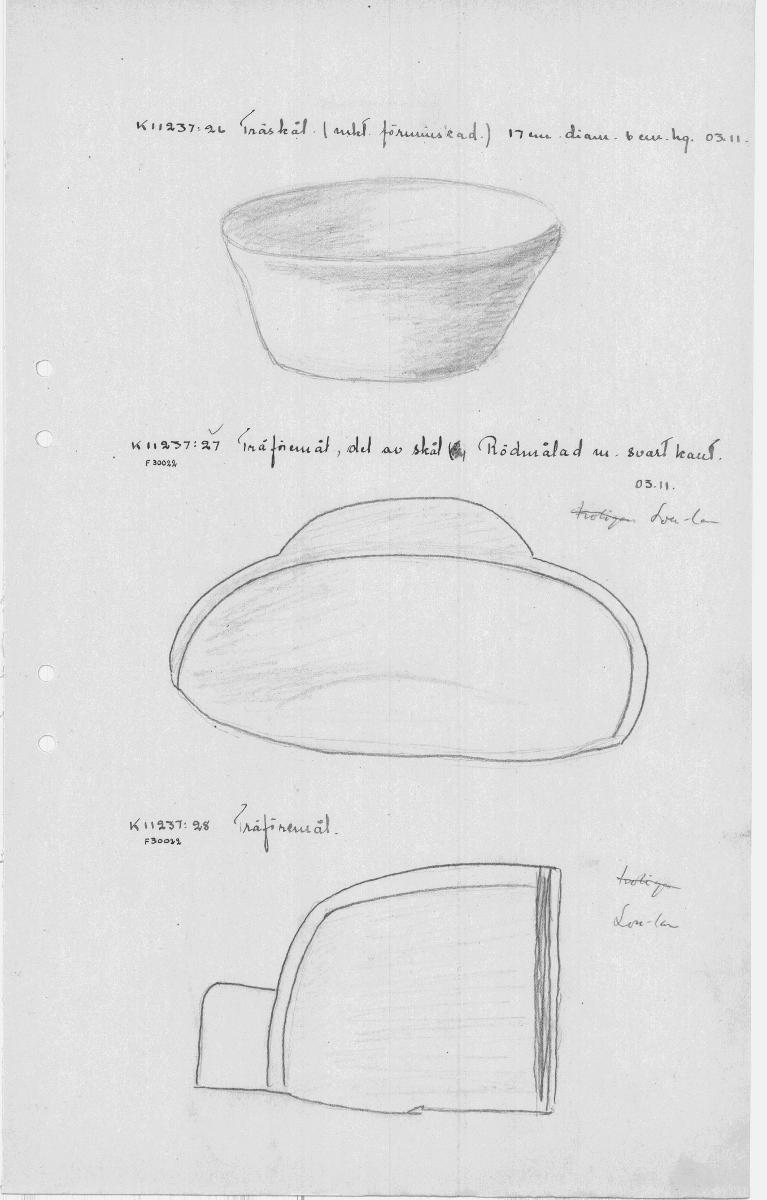 K11237:26 Träskål. (mkt. förminskad.) 17 cm. diam. 6 cm. hg. 03.11.
K11237:27 Träföremål, del av skål Rödmålad m. svart kant.
F30022
03.11.
troligen Lou-lan
K11237:28 Träföremål.
F30022
troligen
Lou-lan